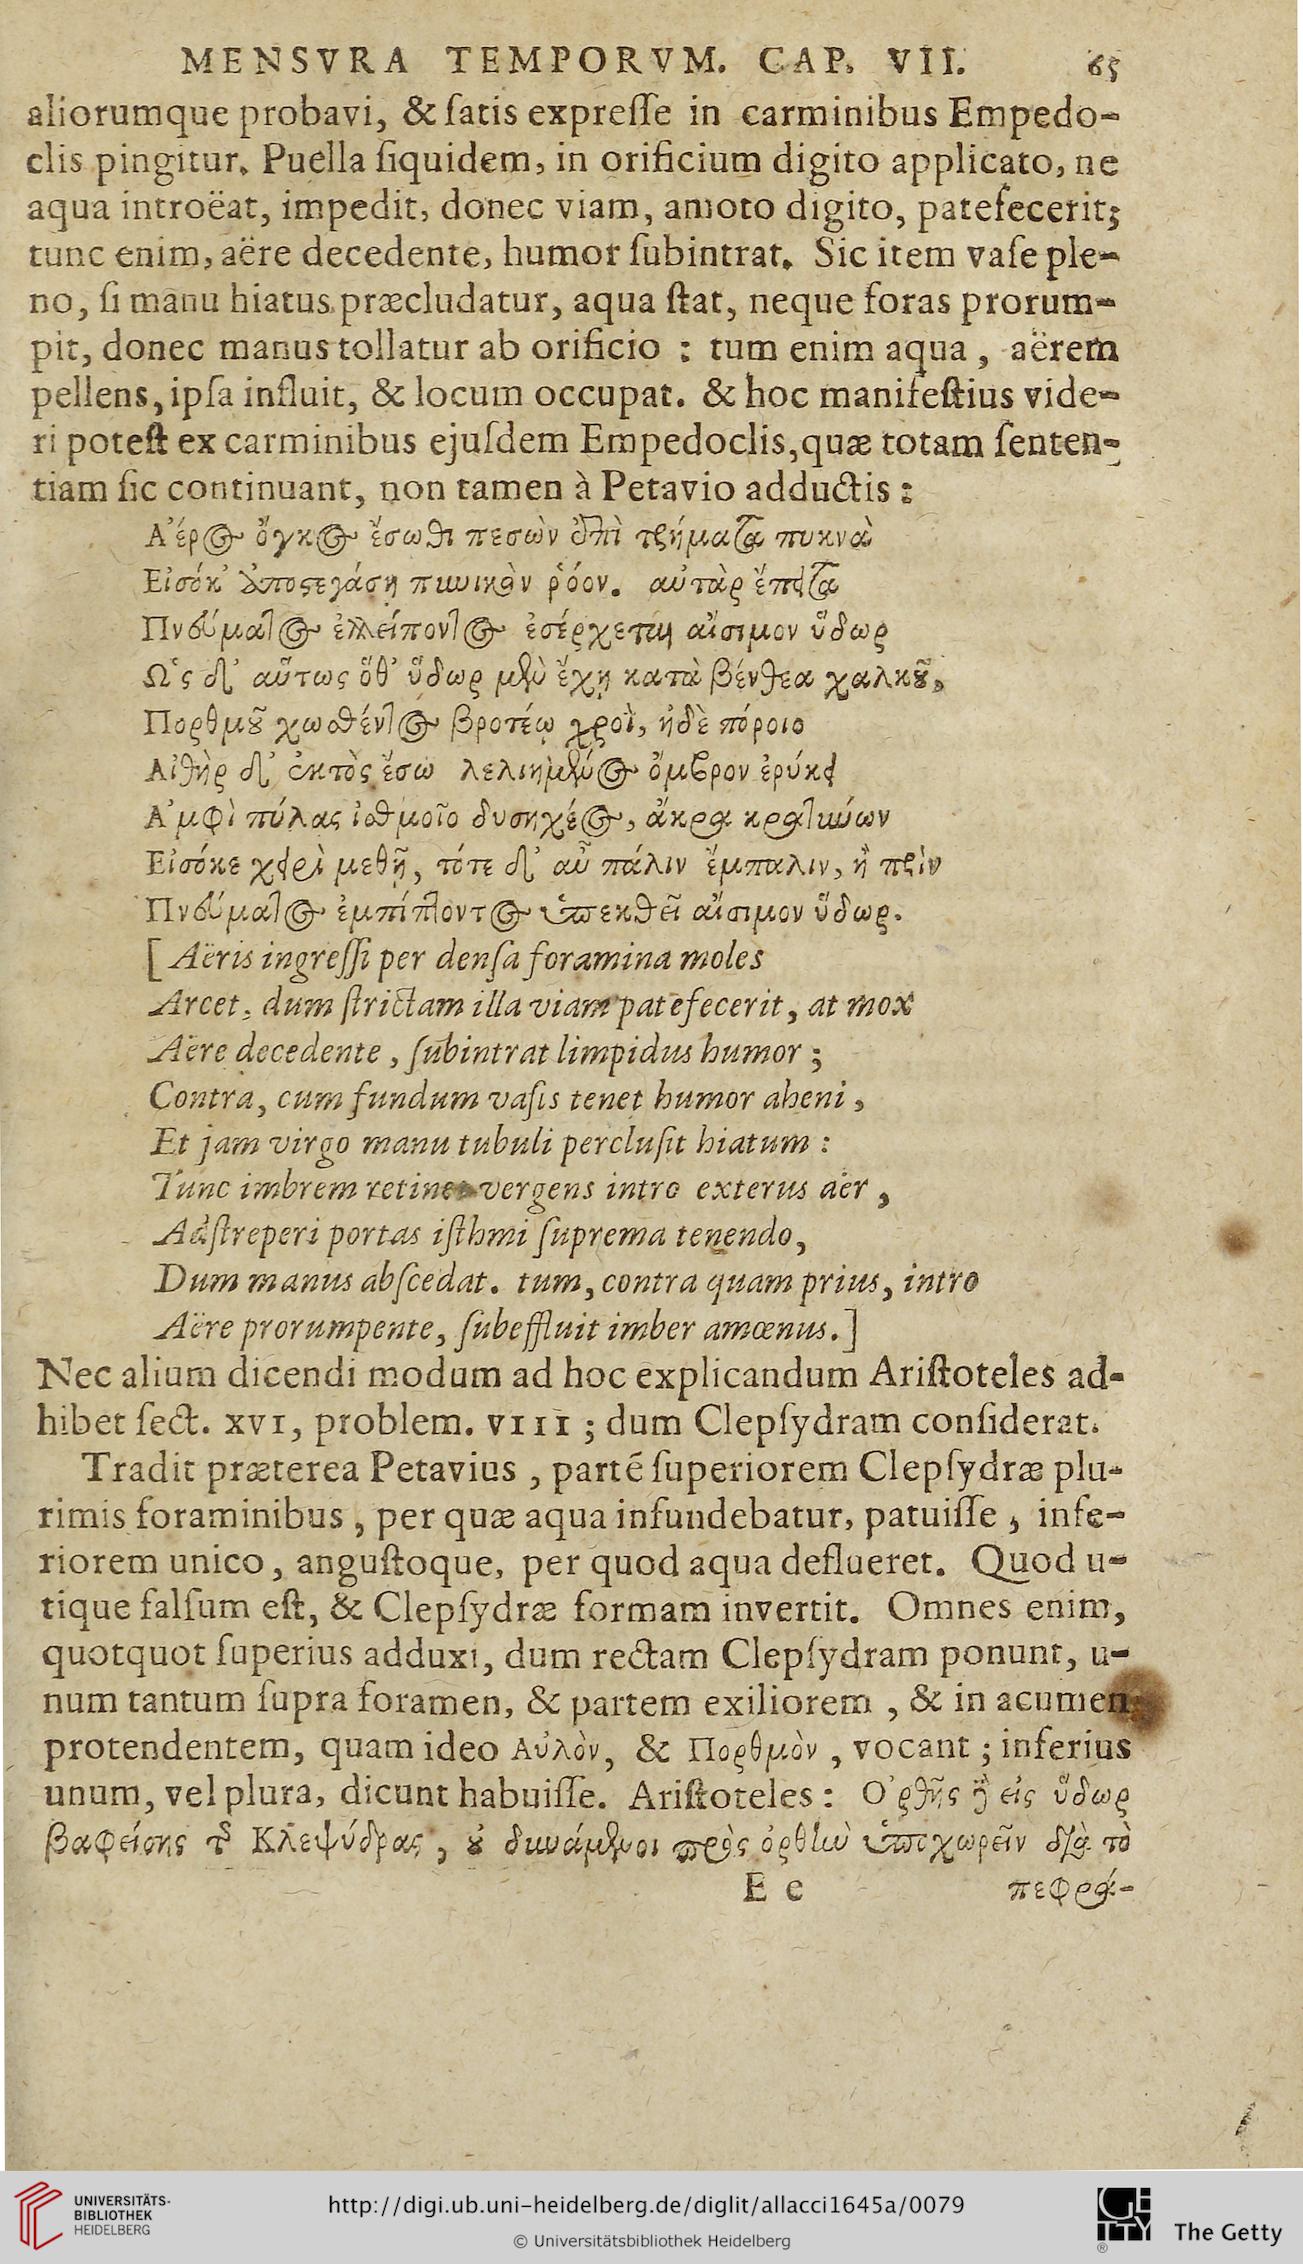 MENSVRA TEMPORVM. CAP. VII. 65
aliorumque probavi, & ſatis expreſſe in carminibus Empedo-
clis pingitur. Puella ſiquidem, in orificium digito applicato, ne
aqua introëat, impedit, donec viam, amoto digito, patefecerit;
tunc enim, aëre decedente, humor ſubintrat. Sic item vaſe ple-
no, ſi manu hiatus præcludatur, aqua ſtat, neque foras prorum-
pit, donec manus tollatur ab orificio : tum enim aqua, aërem
pellens, ipſa influit, & locum occupat. & hoc manifeſtius vide-
ri poteſt ex carminibus ejuſdem Empedoclis, quæ totam ſenten-
tiam ſic continuant, non tamen à Petavio adductis :
Α᾽έρος ὄγκος ἔσωθι πεσὼν ἐπὶ τρήματα πυκνὰ
Εἰσόκ᾽ ἀποστεγάσῃ πυκινὸν ῥόον. αὐτὰρ ἔπειτα
Πνεύματος ἐλλείποντος ἐσέρχεται αἴσιμον ὕδωρ
Ω῾ς δ᾽ αὔτως ὅθ᾽ ὕδωρ μὲν ἔχῃ κατὰ βένθεα χαλκοῦ,
Πορθμοῦ χωσθέντος βροτέῳ χροῒ, ἠδὲ πόροιο
Αἰθὴρ δ᾽ ἐκτὸς ἔσω λελιημένος ὄμβρον ἐρύκει
Α᾽μφὶ πύλας ἰσθμοῖο δυσηχέος, ἄκρα κρατύνων
Εἰσόκε χειρὶ μεθῇ, τότε δ᾽ αὖ πάλιν ἔμπαλιν, ἢ πρὶν
Πνεύματος ἐμπίπτοντος ὑπεκθεῖ αἴσιμον ὕδωρ.
[ Aëris ingreſſi per denſa foramina moles
Arcet, dum ſtrictam illa viam patefecerit, at mox
Aëre decedente, ſubintrat limpidus humor ;
Contra, cum fundum vaſis tenet humor aheni,
Et jam virgo manu tubuli percluſit hiatum :
Tunc imbrem retinet vergens intro exterus aër,
Adſtreperi portas iſthmi ſuprema tenendo,
Dum manus abſcedat. tum, contra quam prius, intro
Aëre prorumpente, ſubeffluit imber amœnus. ]
Nec alium dicendi modum ad hoc explicandum Ariſtoteles ad-
hibet ſect. XVI, problem. VIII ; dum Clepſydram conſiderat.
Tradit præterea Petavius, partē ſuperiorem Clepſydræ plu-
rimis foraminibus, per quæ aqua infundebatur, patuiſſe, infe-
riorem unico, anguſtoque, per quod aqua deflueret. Quod u-
tique falſum eſt, & Clepſydræ formam invertit. Omnes enim,
quotquot ſuperius adduxi, dum rectam Clepſydram ponunt, u-
num tantum ſupra foramen, & partem exiliorem, & in acumen
protendentem, quam ideo Αὐλὸν, & Πορθμὸν, vocant ; inferius
unum, vel plura, dicunt habuiſſe. Ariſtoteles : Ο᾽ρθῆς ἢ εἰς ὕδωρ
βαφείσης τῆς Κλεψύδρας, οὐ δυνάμενοι πρὸς ὀρθὴν ὑποχωρεῖν διὰ τὸ
E e πεφρά-
UNIVERSITÄTS-
BIBLIOTHEK
HEIDELBERG
http://digi.ub.uni-heidelberg.de/diglit/allacci1645a/0079
© Universitätsbibliothek Heidelberg
GETTY
®
The Getty